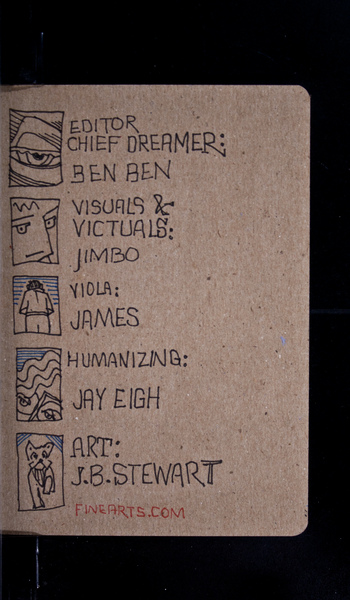 EDITOR
CHIEF DREAMER:
BEN BEN
VISUALS &
VICTUALS:
JIMBO
VIOLA:
JAMES
HUMANIZING:
JAY EIGH
ART:
J.B.STEWART
FINEARTS.COM